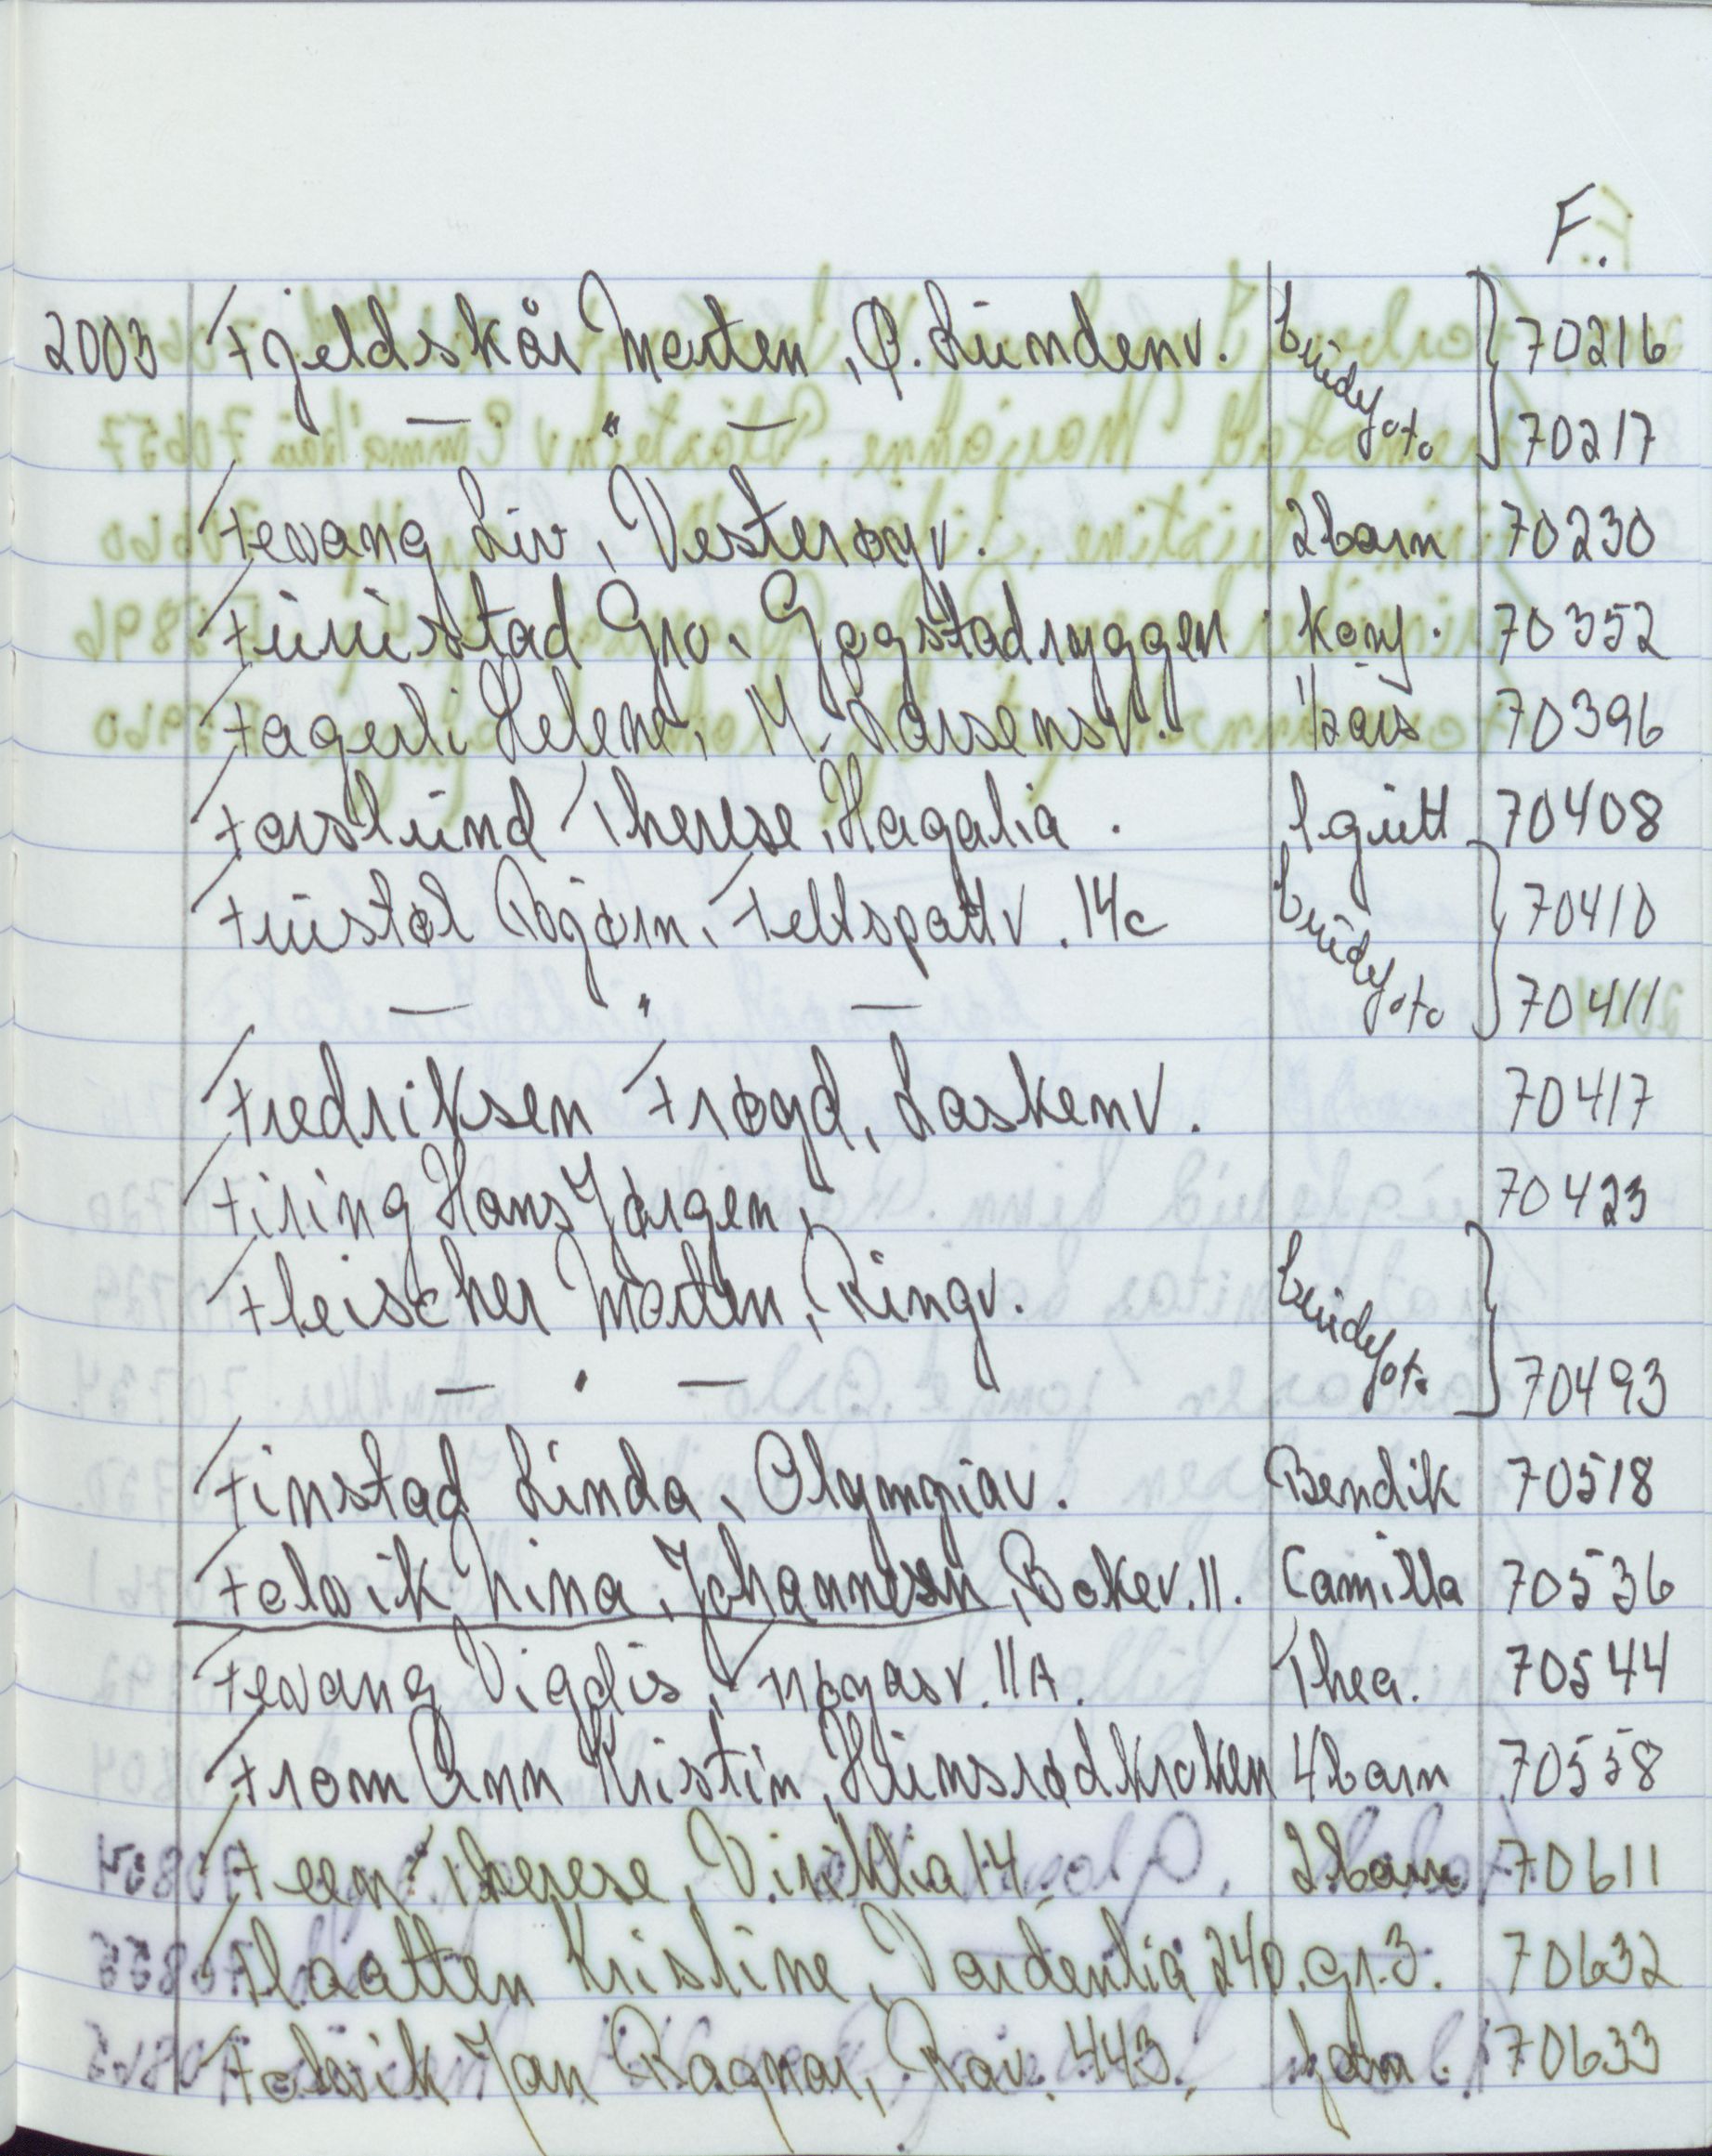 F.
2003 Fjeldskår Morten, Ø. Lundenv. brudefoto 70216
— " — 70217
Fevang Liv, Vesterøyv. 2barn 70230
Furustad Gro, Gogstadryggen konf. 70352
Fagerli Helene, M. Larsensv. 1/2års 70396
Forslund Therese, Hagalia. 1gutt 70408
Fuistøl Bjørn, Feltspattv. 14c brudefoto 70410
— " — 70411
Fredriksen Frøyd, Laskenv. 70417
Firing Hans Jørgen, 70423
Fleischer Morten, Ringv. brudefoto
— " — 70493
Finstad Linda, Olympiav. Bendik 70518
Folvik Nina, Johannesen, Bokev. 11. Camilla 70536
Fevang Vigdis, Frøyasv. 11A. Thea. 70544
From Ann Kristin, Hunsrødkroken 4barn 70558
Feen Therese, Viriklia 14. 2barn 70611
Flaatten Kristine, Vardenlia 240. gr.3. 70632
Folvik Jan Ragnar, Rav. 443. 70633